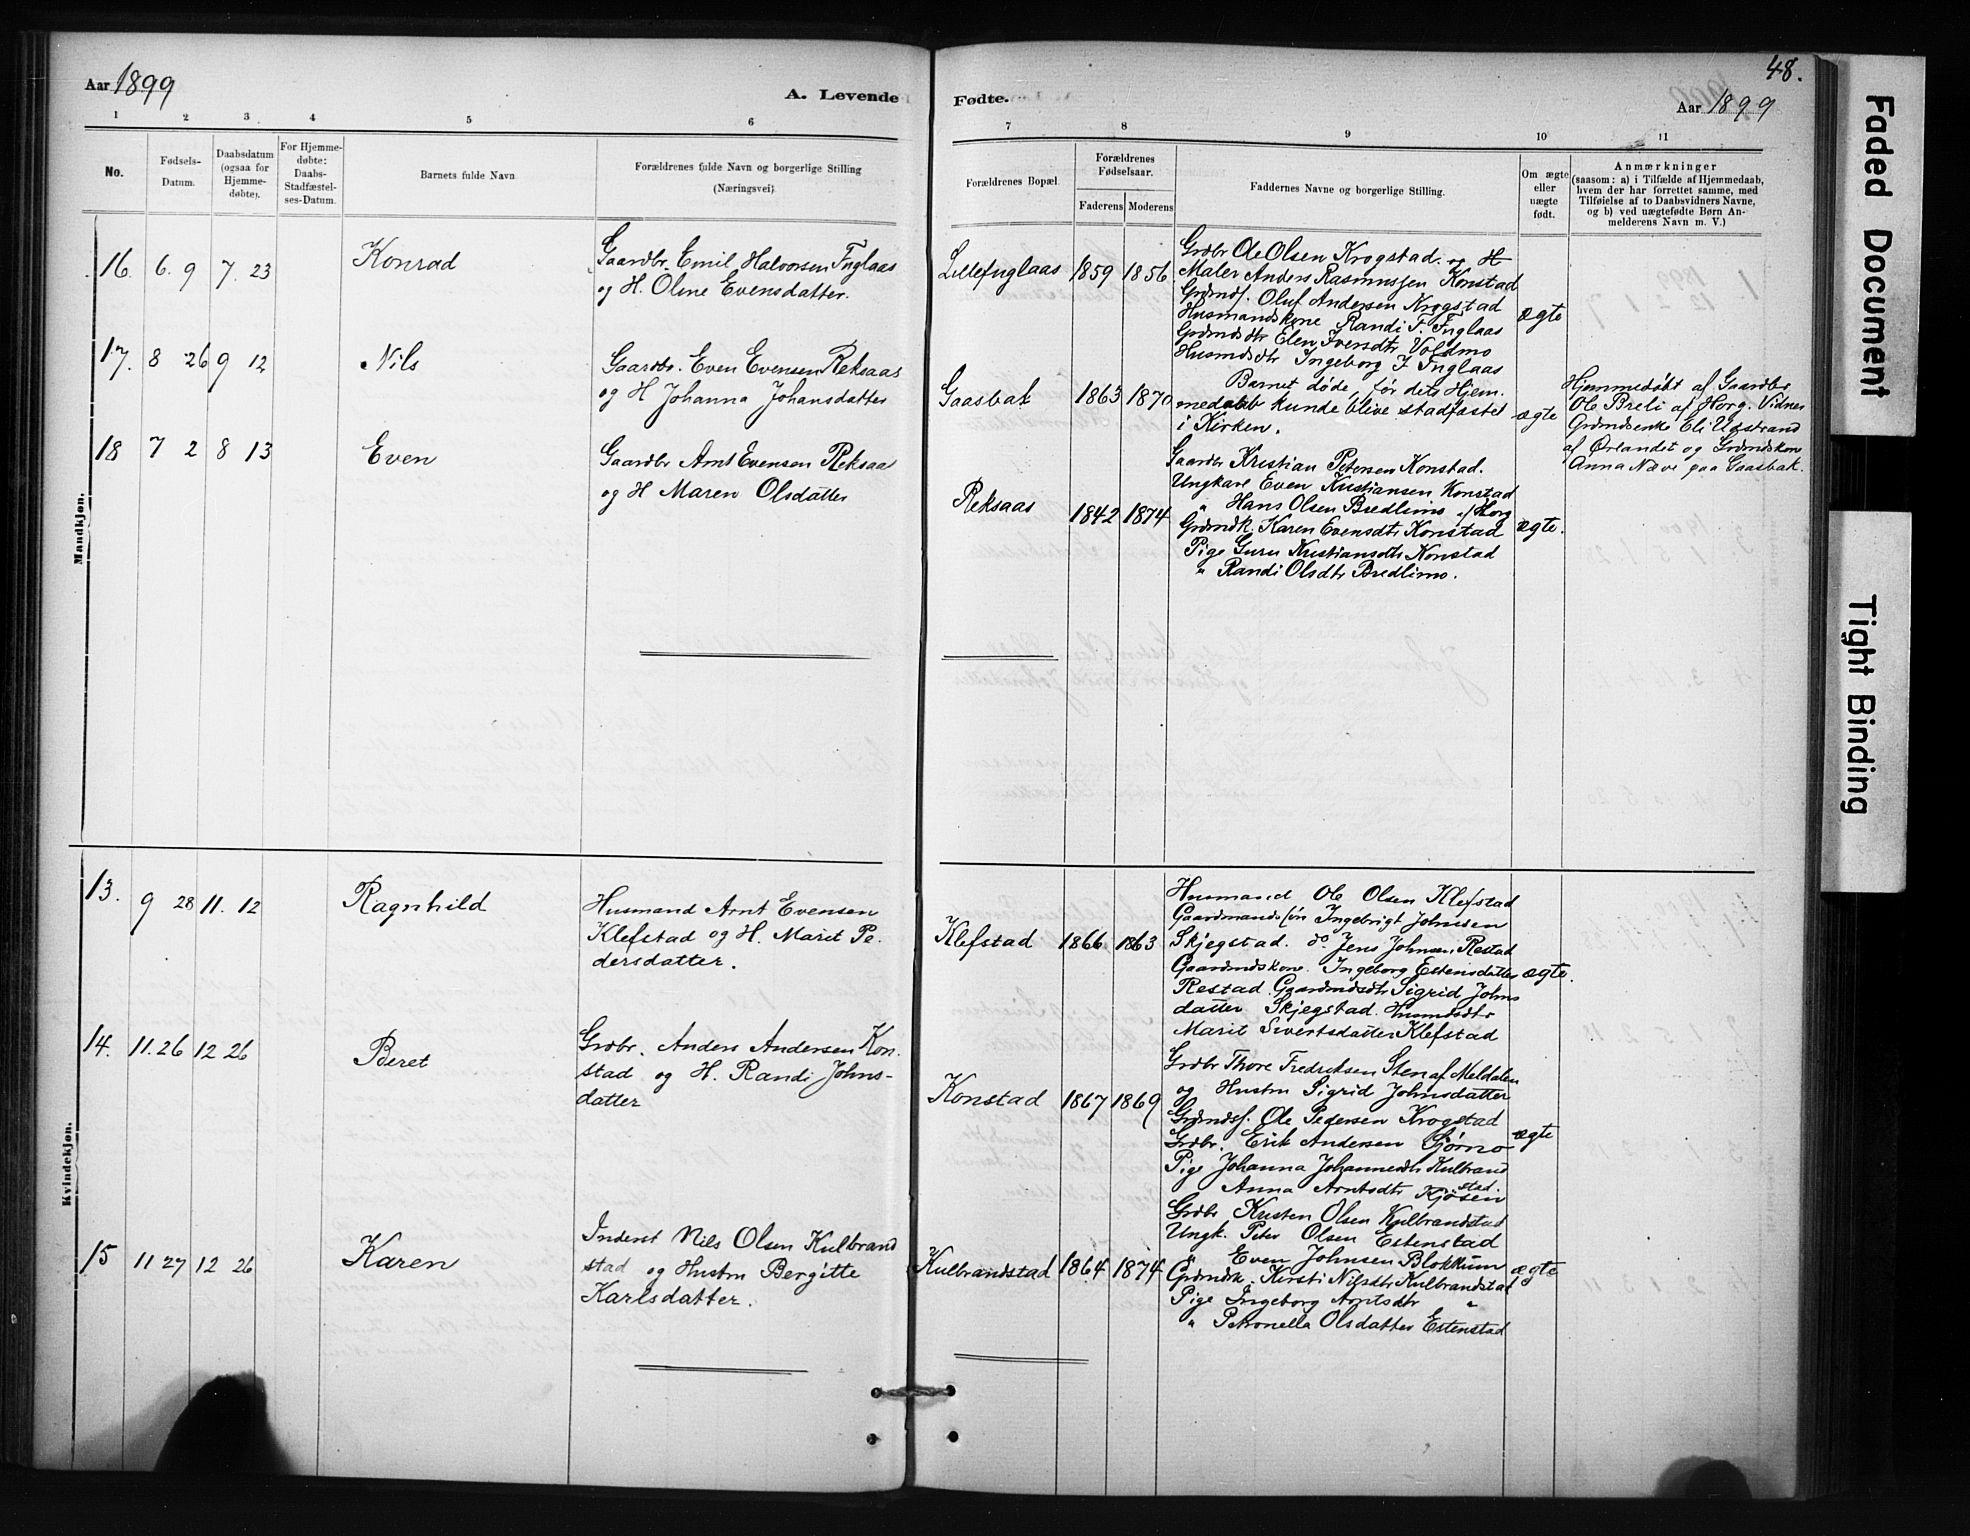 48.
Aar 1899
A. Levende
Fødte.
Aar 1899
1 2 3 4 5 6
7 8 9 10 11
No.
Fødsels-
Datum.
Daabsdatum
(ogsaa for
Hjemme-
døbte).
For Hjemme-
døbte:
Daabs-
Stadfæstel-
ses-Datum.
Barnets fulde Navn
Forældrenes fulde Navn og borgerlige Stilling
(Næringsvei).
Forældrenes Bopæl.
Forældrenes
Fødselsaar.
Faderens Moderens
Faddernes Navne og borgerlige Stilling.
Om ægte
eller
uægte
født.
Anmærkninger
(saasom: a) i Tilfælde af Hjemmedaab,
hvem der har forrettet samme, med
Tilføielse af to Daabsvidners Navne,
og b) ved uægtefødte Børn An-
melderens Navn m. V.)
Mandkjøn.
16. 6. 9 7. 23
Konrad
Gaardbr. Emil Halvorsen Fuglaas
og H. Oline Evensdatter.
Lillefuglaas 1859 1856.
Grdbr Ole Olsen Krogstad. og H
Maler Anders Rasmussen Konstad
Grdmds. Oluf Andersen Krogstad
Husmandskone Randi F. Fuglaas
Grdmdsdtr Elen Iversdtr Voldmo
Husmdsdtr Ingeborg I Fuglaas
ægte
17. 8 26 9 12
Nils
Gaardbr. Even Evensen Reksaas
og H Johanna Johansdatter
Gaasbak 1863 1870
Barnet døde, før dets Hjem-
medaab kunde blive stadfæstet
i Kirken.
ægte
Hjemmedøbt af Gaardbr
Ole Breli af Horg. Vidner
Grdmdsenke Eli Ugstrand
af Ørlandet og Grdmdskon
Anna Næve paa Gaasbak.
18 7 2 8 13
Even
Gaardbr Arnt Evensen Reksaas
og H Maren Olsdatter
Reksaas 1842 1874
Gaardbr Kristian Petersen Konstad.
Ungkarl Even Kristiansen Konstad
" Hans Olsen Bredlimo af Horg
Grdmdk. Karen Evensdtr Konstad
Pige Guru Kristiansdtr Konstad
" Randi Olsdtr Bredlimo.
ægte.
Kvindekjøn.
13. 9 28 11. 12
Ragnhild
Husmand Arnt Evensen
Klefstad og H. Marit Pe-
dersdatter.
Klefstad 1866 1863
Husmand Ole Olsen Klefstad
Gaardmandssøn Ingebrigt Johnsen
Skjegstad. do. Jens Johnsen Restad
Gaardmdskone. Ingeborg Estensdatter
Restad. Gaardmdsdtr Sigrid Johns
datter Skjegstad. Husmdsdtr
Marit Sivertsdatter Klefstad
ægte.
14. 11. 26 12 26
Beret
Grdbr. Anders Andersen Kon-
stad og H. Randi Johns-
datter
Konstad 1867 1869
Grdbr Thore Fredriksen Sten af Meldalen
og Hustru Sigrid Johnsdatter
Grdmdss. Ole Pedersen Krogstad
Grdbr. Erik Andersen
Pige Johanna Johannesdtr Kulbrand
stad.
Anna Arntsdtr Kjøsen
ægte
15 11 27 12 26
Karen
Inderst Nils Olsen Kulbrand
stad og Hustru Bergitte
Karlsdatter.
Kulbrandstad 1864 1874
Grdbr Kristen Olsen Kulbrandstad
Ungk. Peter Olsen Estenstad
" Even Johnsen Blokkum
Grdmdk. Kirsti Nilsdtr Kulbrandstad
Pige Ingeborg Arntsdtr "
" Petronella Olsdatter Estenstad
ægte
Faded Document
Tight Binding